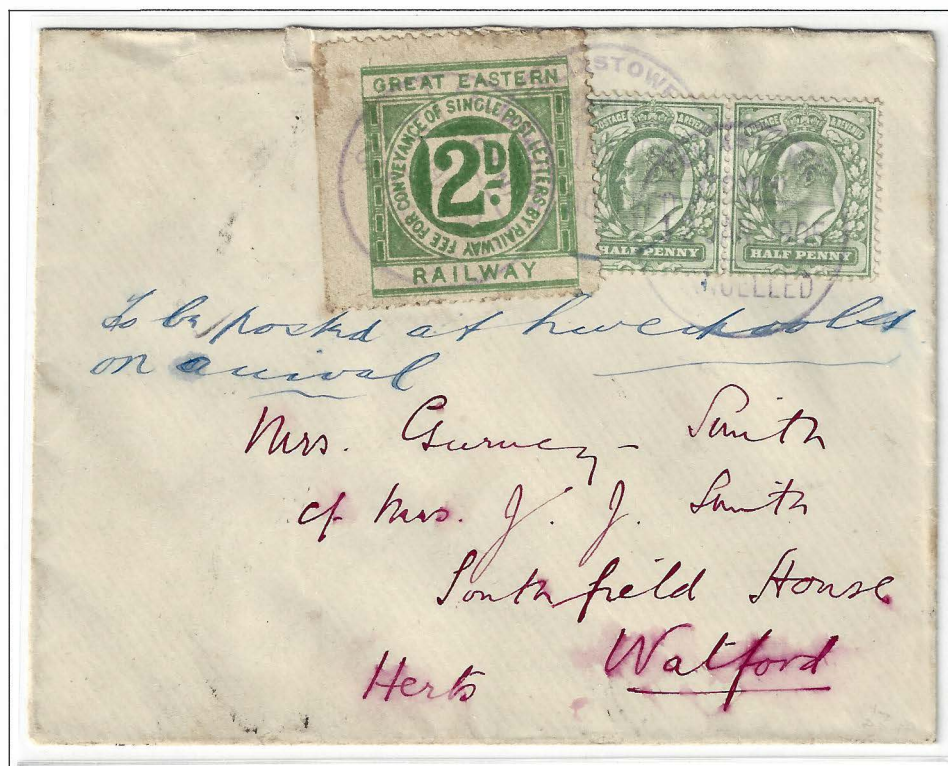 GREAT EASTERN
FEE FOR CONVEYANCE OF SINGLE POST LETTERS BY RAILWAY
2D.
RAILWAY
POSTAGE & REVENUE
HALF PENNY
POSTAGE & REVENUE
HALF PENNY
To be posted at
on arrival
Mrs. Gurney-Smith
c/o Mrs. J. J. Smith
Southfield House
Watford
Herts